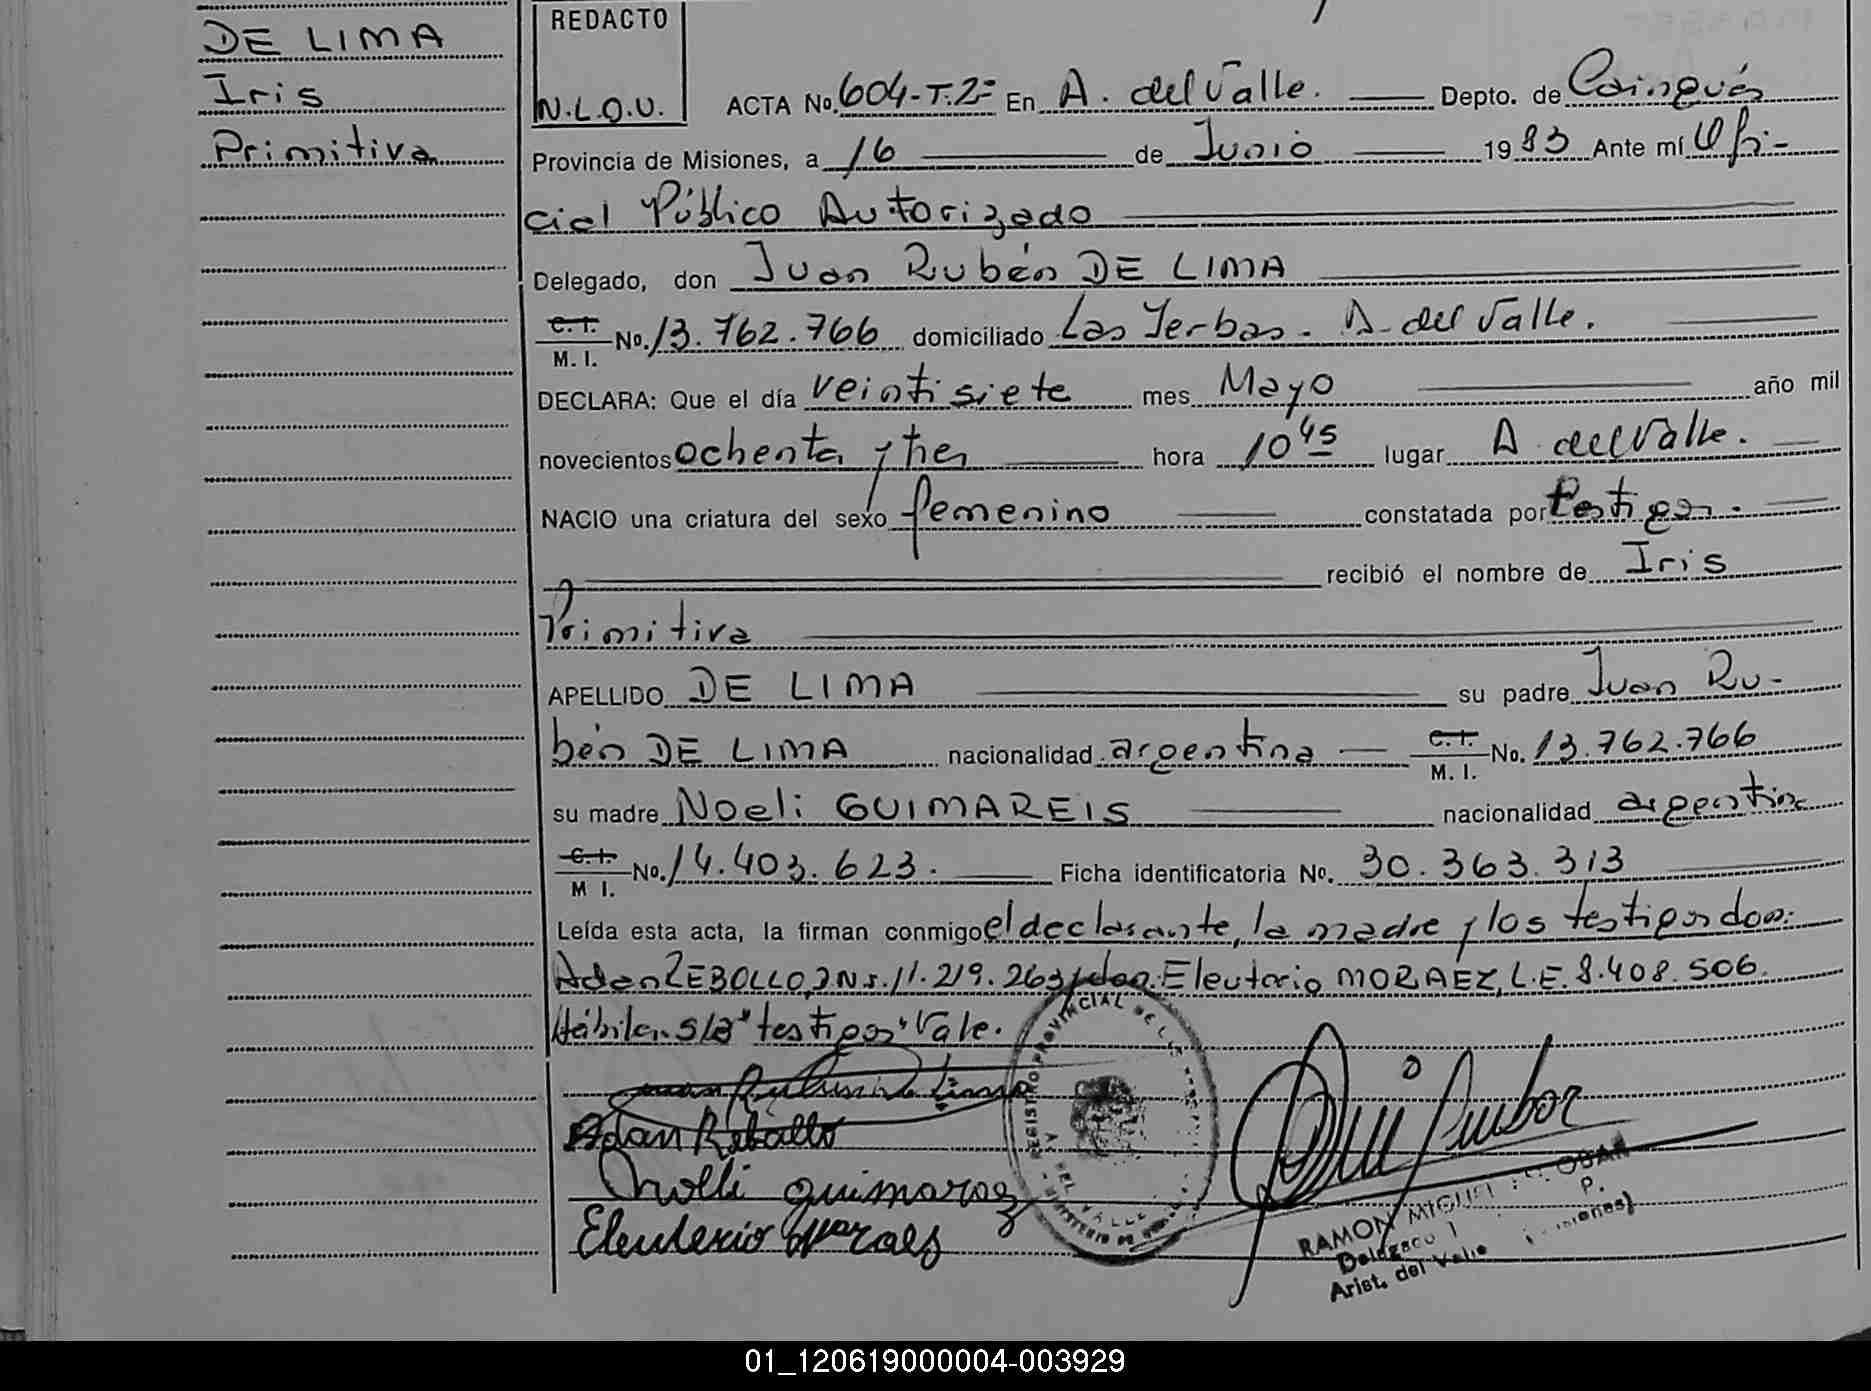 DE LIMA
Iris
Primitiva
REDACTO
N.L.Q.U.
ACTA No. 604-T.2º En A. del Valle. Depto. de Cainguás
Provincia de Misiones, a 16 de Junio 1983 Ante mí Ofi-
cial Público Autorizado
Delegado, don Juan Rubén DE LIMA
C. I. M. I. No. 13.762.766 domiciliado Las Yerbas. A. del Valle.
DECLARA: Que el día veintisiete mes Mayo año mil
novecientos ochenta y tres hora 10 45 lugar A. del Valle.
NACIO una criatura del sexo femenino constatada por testigos.
recibió el nombre de Iris
Primitiva
APELLIDO DE LIMA su padre Juan Ru-
bén DE LIMA nacionalidad argentina C. I. M. I. No. 13.762.766
su madre Noeli GUIMAREIS nacionalidad argentina
C. I. M I. No. 14.403.623. Ficha identificatoria No. 30.363.313
Leída esta acta, la firman conmigo el declarante, la madre y los testigos don:
Adan REBOLLO, D.N.I. 11.219.263 y don: Eleuterio MORAEZ, L.E. 8.408.506.
Hábiles. S/B "testigos" Vale.
Juan Ruben De Lima
Adan Reballo
Noeli guimaraez
Eleuterio Moraes
REGISTRO PROVINCIAL DE LAS
A. DEL VALLE
MINISTERIO DE
RAMON MIGUEL
Delegado
Arist. del Valle (Misiones)
01_120619000004-003929